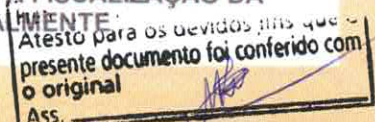 FISCALIZAÇÃO DA
ALMENTE
Atesto para os devidos fins que o
presente documento foi conferido com
o original
Ass.